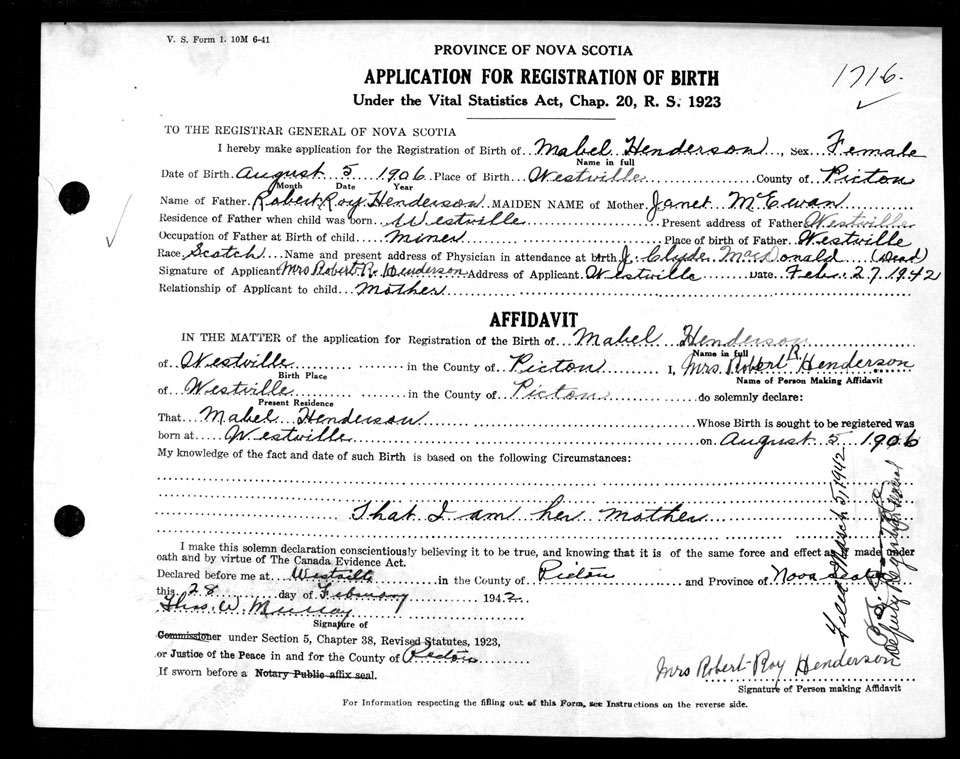 V. S. Form 1. 10M 6-41
PROVINCE OF NOVA SCOTIA
APPLICATION FOR REGISTRATION OF BIRTH
1716.
Under the Vital Statistics Act, Chap. 20, R. S. 1923
TO THE REGISTRAR GENERAL OF NOVA SCOTIA
I hereby make application for the Registration of Birth of Mabel Henderson, Sex Female
Name in full
Date of Birth August 5 1906 Place of Birth Westville County of Pictou
Month Date Year
Name of Father Robert Roy Henderson MAIDEN NAME of Mother Janet McEwan
Residence of Father when child was born Westville Present address of Father Westville
Occupation of Father at Birth of child miner Place of birth of Father Westville
Race Scotch Name and present address of Physician in attendance at birth J. Clyde MacDonald (Dead)
Signature of Applicant Mrs Robert R. Henderson Address of Applicant Westville Date Feb. 27, 1942
Relationship of Applicant to child Mother
AFFIDAVIT
IN THE MATTER of the application for Registration of the Birth of Mabel Henderson
Name in full
of Westville in the County of Pictou I, Mrs. Robert R. Henderson
Birth Place Name of Person Making Affidavit
of Westville in the County of Pictou do solemnly declare:
Present Residence
That Mabel Henderson Whose Birth is sought to be registered was
born at Westville on August 5 1906
My knowledge of the fact and date of such Birth is based on the following Circumstances:
That I am her mother
I make this solemn declaration conscientiously believing it to be true, and knowing that it is of the same force and effect as made under
oath and by virtue of The Canada Evidence Act.
Declared before me at Westville in the County of Pictou and Province of Nova Scotia
this 28 day of February 1942
Thos. W. Murray
Signature of
Commissioner under Section 5, Chapter 38, Revised Statutes, 1923,
or Justice of the Peace in and for the County of Pictou
If sworn before a Notary Public affix seal.
Mrs Robert Roy Henderson
Signature of Person making Affidavit
For Information respecting the filling out of this Form, see Instructions on the reverse side.
Filed March 5, 1942
Deputy Registrar General